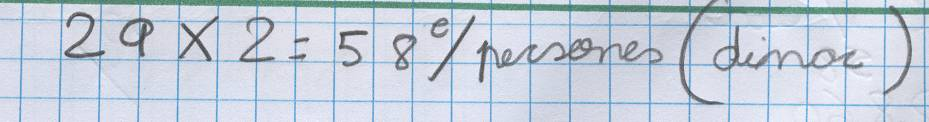 29 x 2 = 58€/persones (dinar)